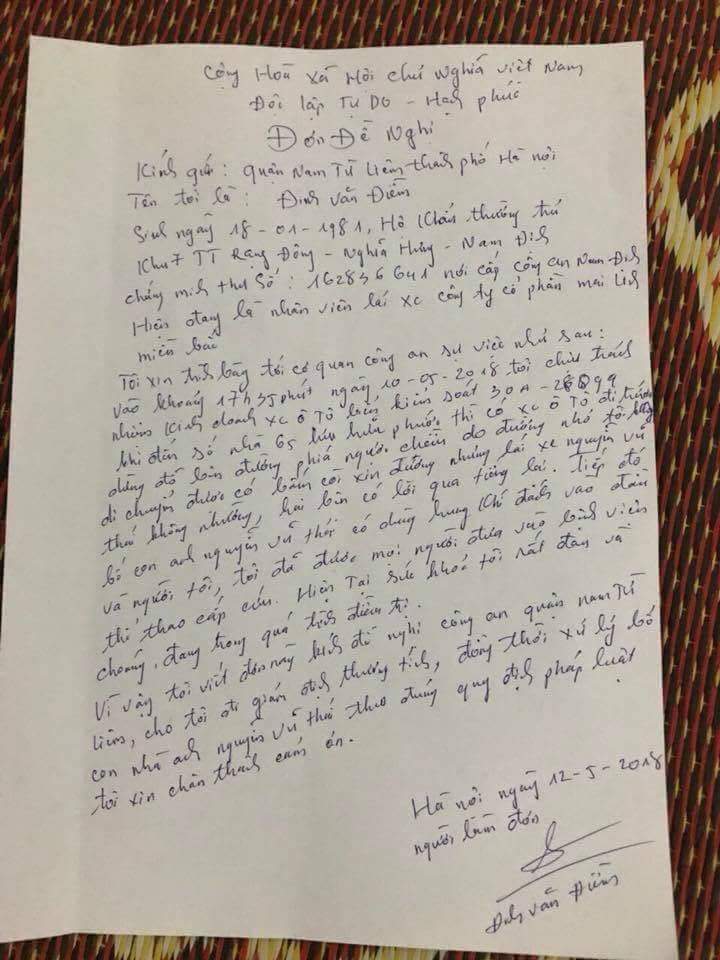 Cộng Hoà xã Hội chủ Nghĩa Việt Nam
Độc lập Tự Do - Hạnh phúc
Đơn Đề Nghị
Kính gửi : Quận Nam Từ Liêm thành phố Hà nội
Tên tôi là : Đinh Văn Điềm
Sinh ngày 18-01-1981, Hộ Khẩu thường trú
Khu 7 TT Rạng Đông - Nghĩa Hưng - Nam Định
chứng minh thư Số : 162836641 nơi cấp công an Nam Định
Hiện đang là nhân viên lái xe công ty cổ phần mai linh
miền bắc
Tôi xin trình bày tới cơ quan công an sự việc như sau :
vào khoảng 17h35 phút ngày 10-05-2018 tôi chịu trách
nhiệm Kinh doanh xe ô Tô biển kiểm soát 30A-
khi đến số nhà 65 lưu hữu phước thì có xe ô Tô đi
dừng đỗ bên đường phía ngược chiều do đường nhỏ tôi
di chuyển được có bấm còi xin đường nhưng lái xe nguyễn vũ
thái không nhường, hai bên có lời qua tiếng lại. Tiếp đó
bố con anh nguyễn vũ thái có dùng hung Khí đánh vào đầu
và người tôi, tôi đã được mọi người đưa vào bệnh viện
thể thao cấp cứu. Hiện Tại sức khoẻ tôi rất đau và
choáng, đang trong quá trình điều trị.
Vì vậy tôi viết đơn này kính đề nghị công an quận nam Từ
liêm, cho tôi đi giám định thương tích, đồng thời xử lý bố
con nhà anh nguyễn vũ thái theo đúng quy định pháp luật
tôi xin chân thành cảm ơn.
Hà nội ngày 12-5-2018
người làm đơn
Đinh Văn Điềm